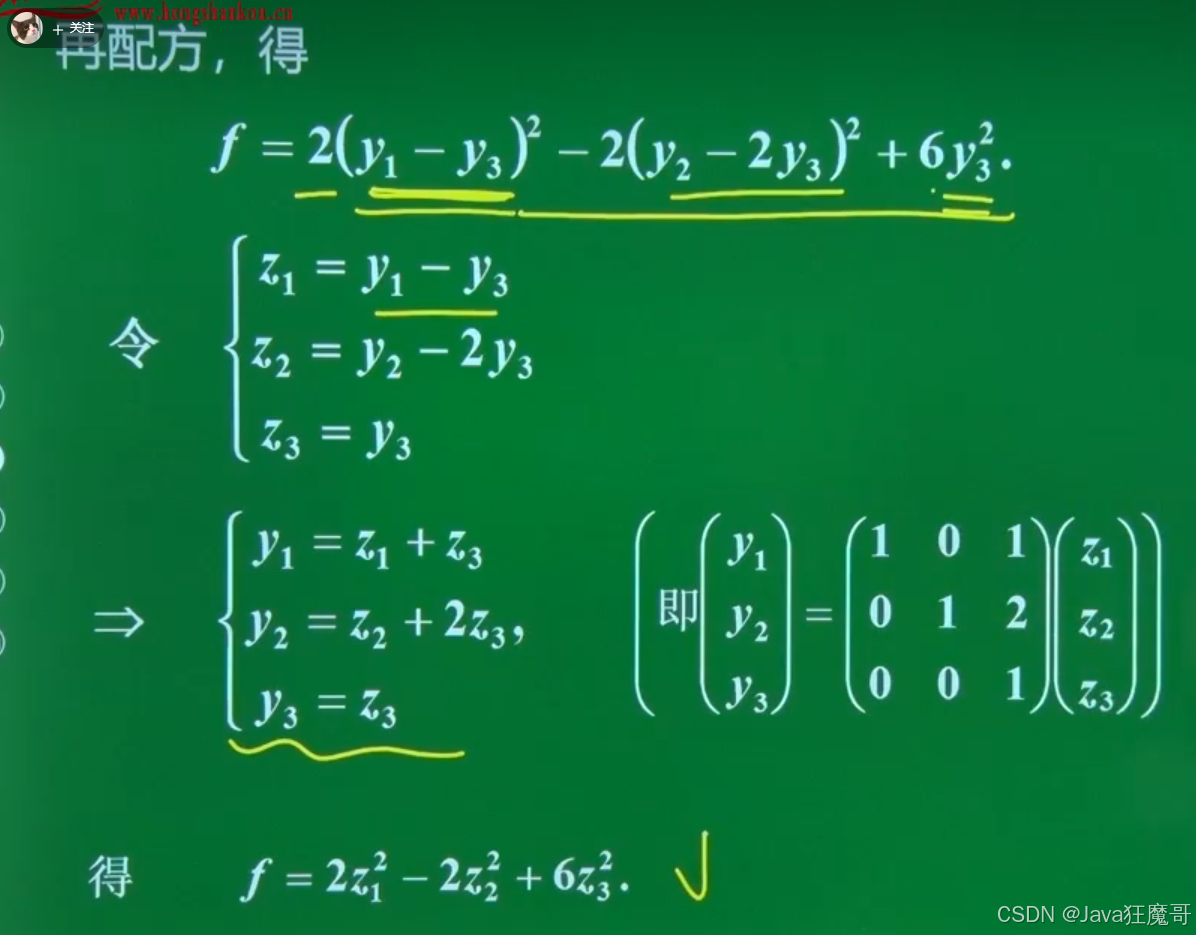 www.kongshankou.cn
+ 关注
再配方，得
f = 2(y₁ − y₃)² − 2(y₂ − 2y₃)² + 6y₃².
令
z₁ = y₁ − y₃
z₂ = y₂ − 2y₃
z₃ = y₃
⇒
y₁ = z₁ + z₃
y₂ = z₂ + 2z₃,
y₃ = z₃
(即 (y₁ y₂ y₃) = (1 0 1
0 1 2
0 0 1) (z₁ z₂ z₃))
得 f = 2z₁² − 2z₂² + 6z₃².
CSDN @Java狂魔哥